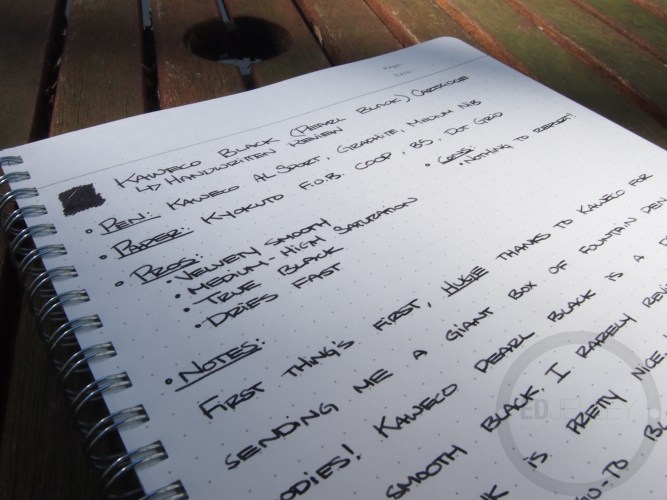 Page:
Date:
KAWECO BLACK (PEARL BLACK) CARTRIDGE
HANDWRITTEN REVIEW
• PEN: KAWECO AL SPORT, GRAPHITE, MEDIUM NIB
• PAPER: KYOKUTO F.O.B. COOP, B5, DOT GRID
• PROS:
• VELVETY SMOOTH
• MEDIUM-HIGH SATURATION
• TRUE BLACK
• DRIES FAST
• CONS:
• NOTHING TO REPORT!
• NOTES:
FIRST THING'S FIRST, HUGE THANKS TO KAWECO FOR
SENDING ME A GIANT BOX OF FOUNTAIN PEN
KAWECO PEARL BLACK IS A
SMOOTH BLACK. I RARELY
IS PRETTY NICE